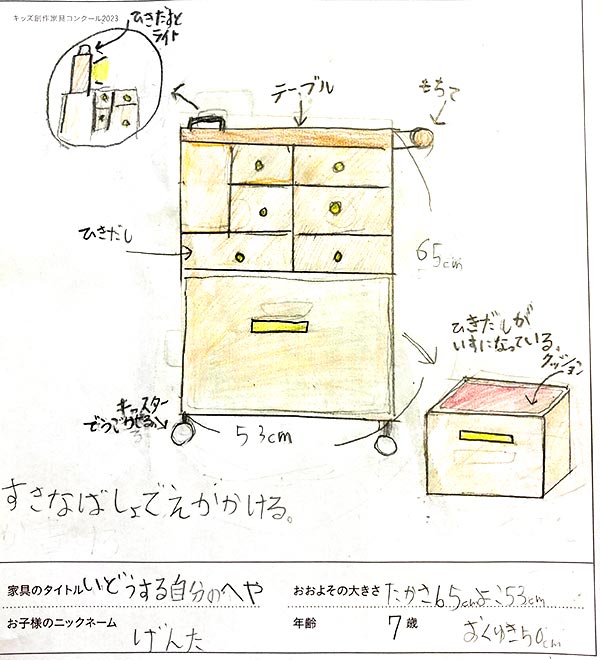 キッズ創作家具コンクール2023
ひきだすと
ライト
テーブル
もちて
ひきだし
65cm
ひきだしが
いすになっている。
クッション
キャスター
でうごかせる
53cm
すきなばしょでえがかける。
家具のタイトル いどうする自分のへや
おおよその大きさ たかさ65cmよこ53cm
おくゆき50cm
お子様のニックネーム げんた
年齢 7歳